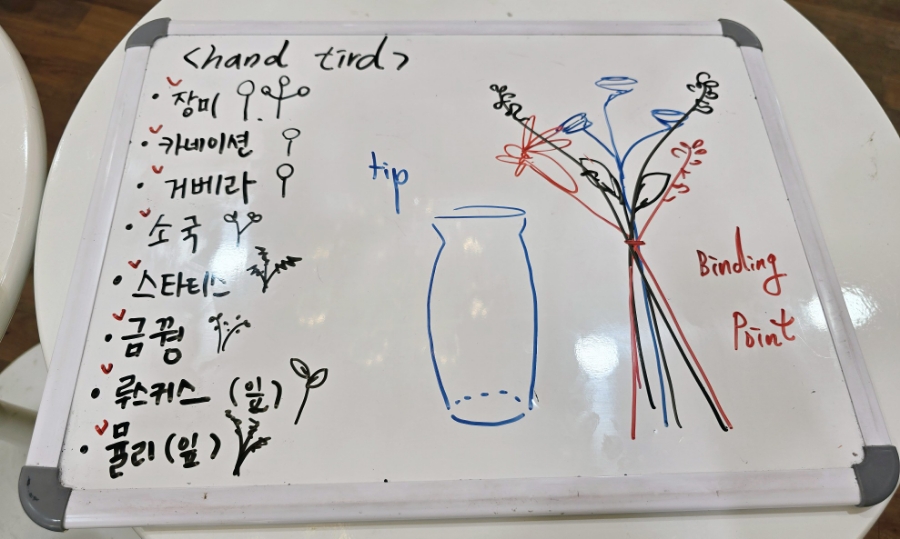 <hand tird>
• 장미
• 카네이션
• 거베라
• 소국
• 스타티스
• 금꿩
• 루스커스 (잎)
• 뮬리 (잎)
tip
Binding
Point